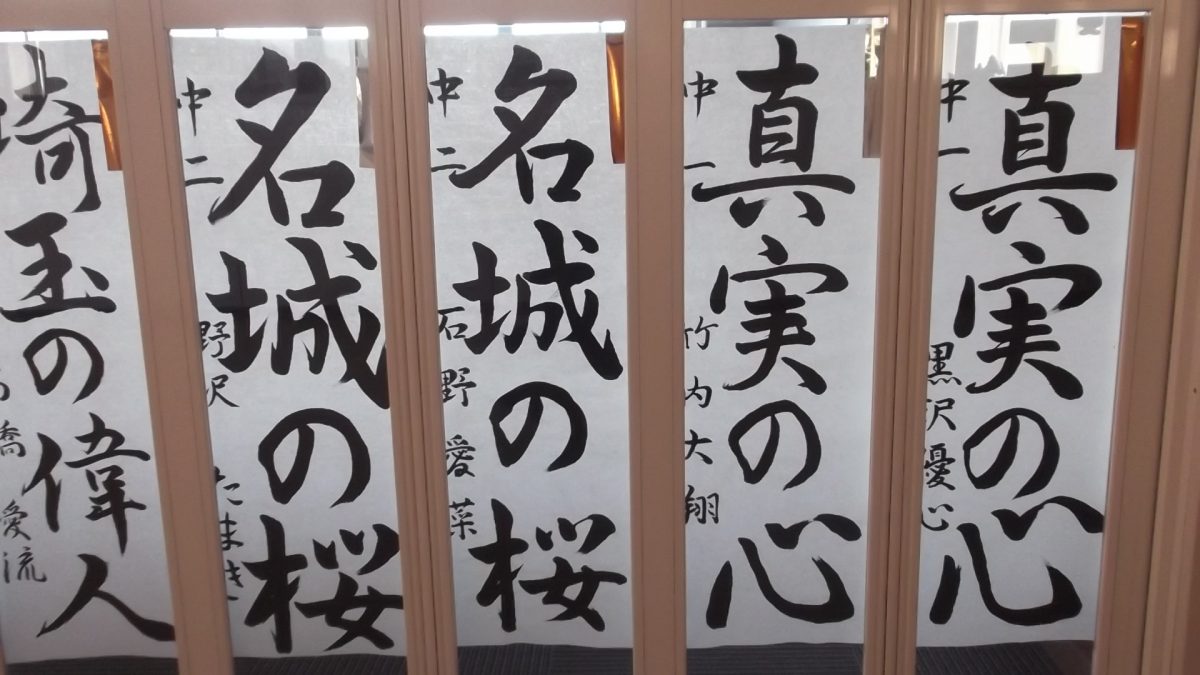 真実の心
中一 黒沢優心
真実の心
中一 竹内大翔
名城の桜
中二 石野愛菜
名城の桜
中二 野沢たまき
埼玉の偉人
橋 愛流